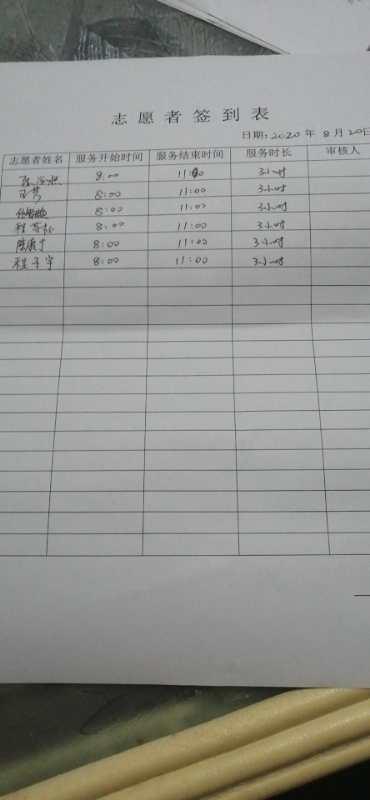 志愿者签到表
日期:2020年8月20日
志愿者姓名 服务开始时间 服务结束时间 服务时长 审核人
8:00 11:00 3小时
8:00 11:00 3小时
8:00 11:00 3小时
8:00 11:00 3小时
8:00 11:00 3小时
程子宇 8:00 11:00 3小时